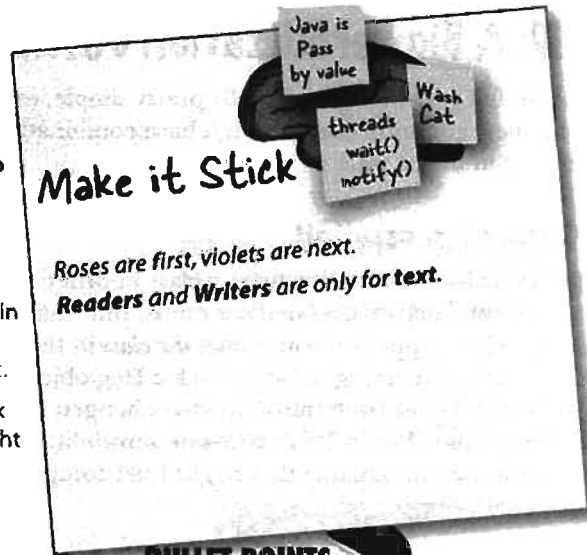 Java is
Pass
by value
Wash
Cat
threads
wait()
notify()
Make it Stick
Roses are first, violets are next.
Readers and Writers are only for text.
in
ht
BULLET POINTS